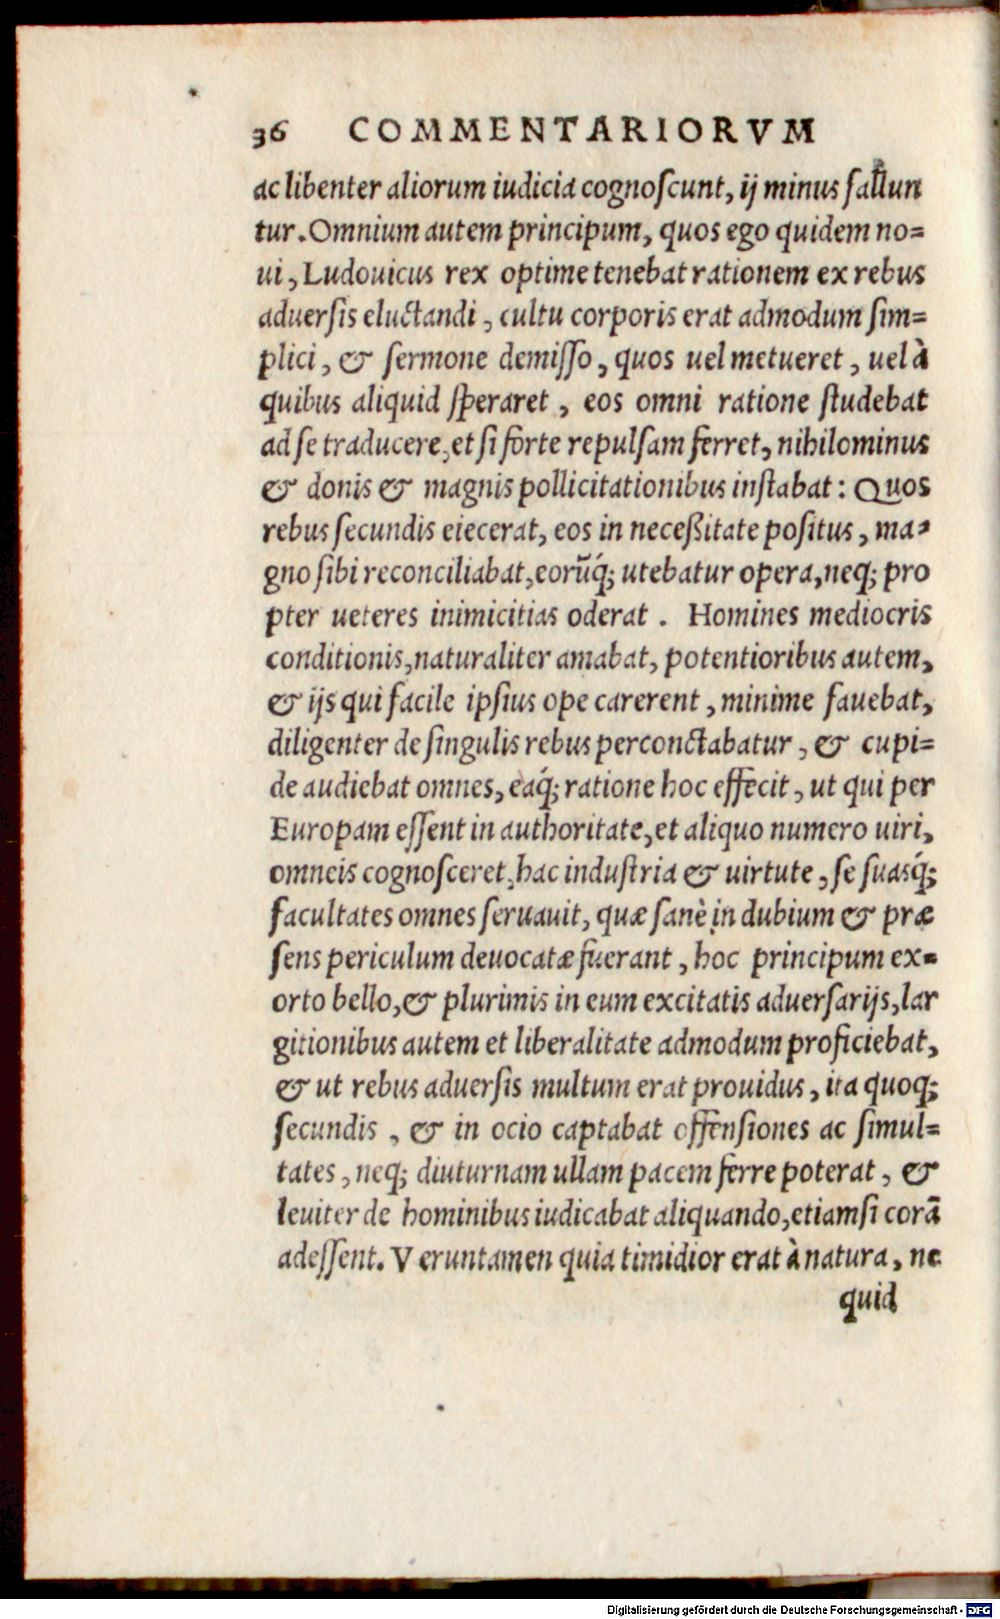 36 COMMENTARIORVM
ac libenter aliorum iudicia cognoſcunt, ij minus fallun
tur. Omnium autem principum, quos ego quidem no=
ui, Ludouicus rex optime tenebat rationem ex rebus
aduerſis eluctandi, cultu corporis erat admodum ſim=
plici, & ſermone demiſſo, quos uel metueret, uel à
quibus aliquid ſperaret, eos omni ratione ſtudebat
ad ſe traducere, et ſi forte repulſam ferret, nihilominus
& donis & magnis pollicitationibus inſtabat: Quos
rebus ſecundis eiecerat, eos in neceßitate poſitus, ma=
gno ſibi reconciliabat, eorũq́; utebatur opera, neq; pro
pter ueteres inimicitias oderat. Homines mediocris
conditionis, naturaliter amabat, potentioribus autem,
& ijs qui facile ipſius ope carerent, minime fauebat,
diligenter de ſingulis rebus percontabatur, & cupi=
de audiebat omnes, eaq́; ratione hoc effecit, ut qui per
Europam eſſent in authoritate, et aliquo numero uiri,
omneis cognoſceret, hac induſtria & uirtute, ſe ſuasq́;
facultates omnes ſeruauit, quæ ſanè in dubium & præ
ſens periculum deuocatæ fuerant, hoc principum ex=
orto bello, & plurimis in eum excitatis aduerſarijs, lar
gitionibus autem et liberalitate admodum proficiebat,
& ut rebus aduerſis multum erat prouidus, ita quoq;
ſecundis, & in ocio captabat offenſiones ac ſimul=
tates, neq; diuturnam ullam pacem ferre poterat, &
leuiter de hominibus iudicabat aliquando, etiamſi corã
adeſſent. Veruntamen quia timidior erat à natura, ne
quid
Digitalisierung gefördert durch die Deutsche Forschungsgemeinschaft - DFG